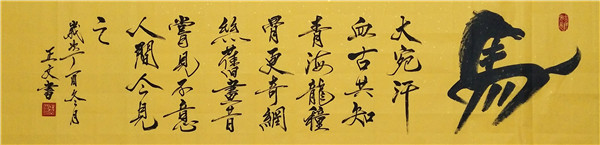 馬
大宛汗
血古共知
青海龍種
骨更奇網
絲舊畫昔
嘗見不意
人間今見
之
歲在丁酉冬月
王文書